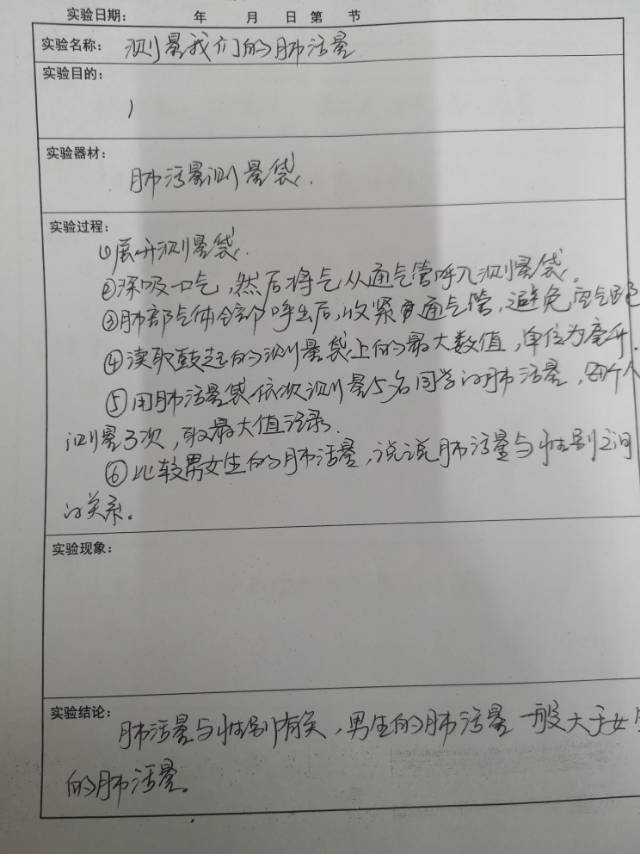 实验日期： 年 月 日 第 节
实验名称： 测量我们的肺活量
实验目的：
实验器材：
肺活量测量袋.
实验过程：
①展开测量袋.
②深吸一气,然后将气从通气管呼入测量袋.
③肺部气体全部呼出后,收紧通气管,避免空气
④读取鼓起的测量袋上的最大数值,单位为毫升.
⑤用肺活量袋依次测量5名同学的肺活量,每个人
测量3次,取最大值记录.
⑥比较男女生的肺活量,说说肺活量与性别之间
的关系。
实验现象：
实验结论：
肺活量与性别有关,男生的肺活量一般大于女生
的肺活量。